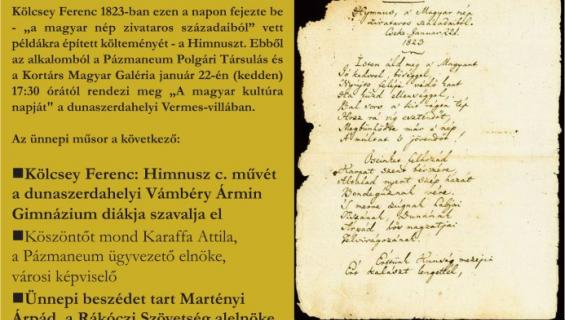 Kölcsey Ferenc 1823-ban ezen a napon fejezte be
- „a magyar nép zivataros századaiból" vett
példákra épített költeményét - a Himnuszt. Ebből
az alkalomból a Pázmaneum Polgári Társulás és
a Kortárs Magyar Galéria január 22-én (kedden)
17:30 órától rendezi meg „A magyar kultúra
napját" a dunaszerdahelyi Vermes-villában.
Az ünnepi műsor a következő:
■Kölcsey Ferenc: Himnusz c. művét
a dunaszerdahelyi Vámbéry Ármin
Gimnázium diákja szavalja el
■Köszöntőt mond Karaffa Attila,
a Pázmaneum ügyvezető elnöke,
városi képviselő
■Ünnepi beszédet tart Martényi
Árpád, a Rákóczi Szövetség alelnöke
Hymnus, a Magyar nép
zivataros századaiból.
Cseke Januar 22d.
1823
Isten áldd meg a Magyart
Jó kedvvel, bőséggel,
Nyújts feléje védő kart
Ha küzd ellenséggel,
Bal sors a kit régen tép
Hozz rá víg esztendőt,
Megbűnhödte már a nép
A multat s jövendőt!
Őseinket felhozád
Kárpát szent bérczére,
Általad nyert szép hazát
Bendegúznak vére.
S merre zúgnak habjai
Tiszának, Dunának
Árpád hős magzatjai
Felvirágozának.
Értünk Kunság mezein
Ért kalászt lengettél,